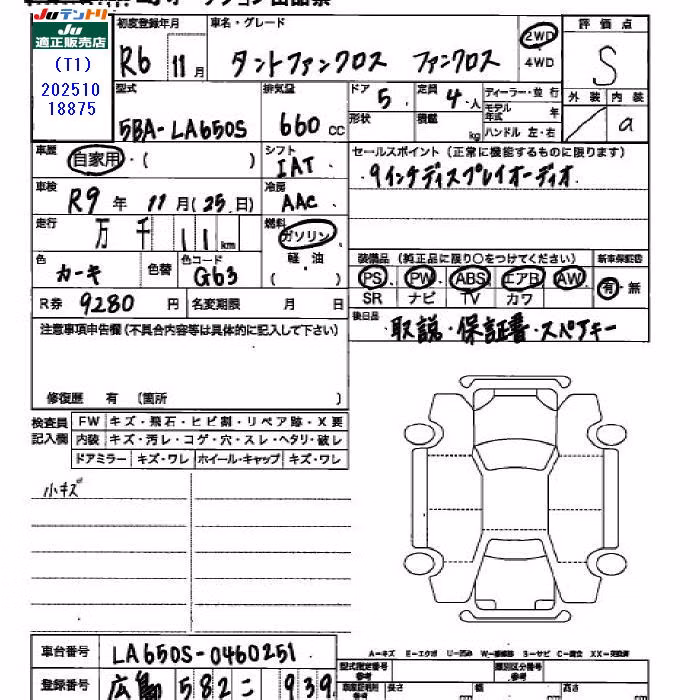 Juテントリ
Ju
適正販売店
(T1)
202510
18875
初度登録年月
R6 11月
車名・グレード
タントファンクロス ファンクロス
2WD
4WD
評価点
S
外装 内装
a
型式
5BA-LA650S
排気量
660 cc
ドア
5
定員
4 人
ディーラー・並行
モデル年式 年
形状
積載 kg
ハンドル 左・右
車歴
自家用・( )
シフト
IAT
セールスポイント(正常に機能するものに限ります)
9インチディスプレイオーディオ
車検
R9年 11月(25日)
冷房
AAC
走行
万 千 11 km
燃料
ガソリン
軽油
( )
色
カーキ
色替
色コード
G63
装備品(純正品に限り○をつけてください)
新車保証書
PS PW ABS エアB AW
有・無
SR ナビ TV カワ
R券 9280 円
名変期限 月 日
後日品
取説・保証書・スペアキー
注意事項申告欄(不具合内容等は具体的に記入して下さい)
修復歴 有 (箇所 )
検査員
記入欄
FW キズ・飛石・ヒビ割・リペア跡・X要
内装 キズ・汚レ・コゲ・穴・スレ・ヘタリ・破レ
ドアミラー キズ・ワレ ホイール・キャップ キズ・ワレ
小キズ
車台番号 LA650S-0460251
A－キズ E－エクボ U－凹み W－補修跡 S－サビ C－腐食 XX－交換済
型式指定番号 参考
類別区分番号 参考
登録番号 広島 582 こ 939
長さ
幅
高さ